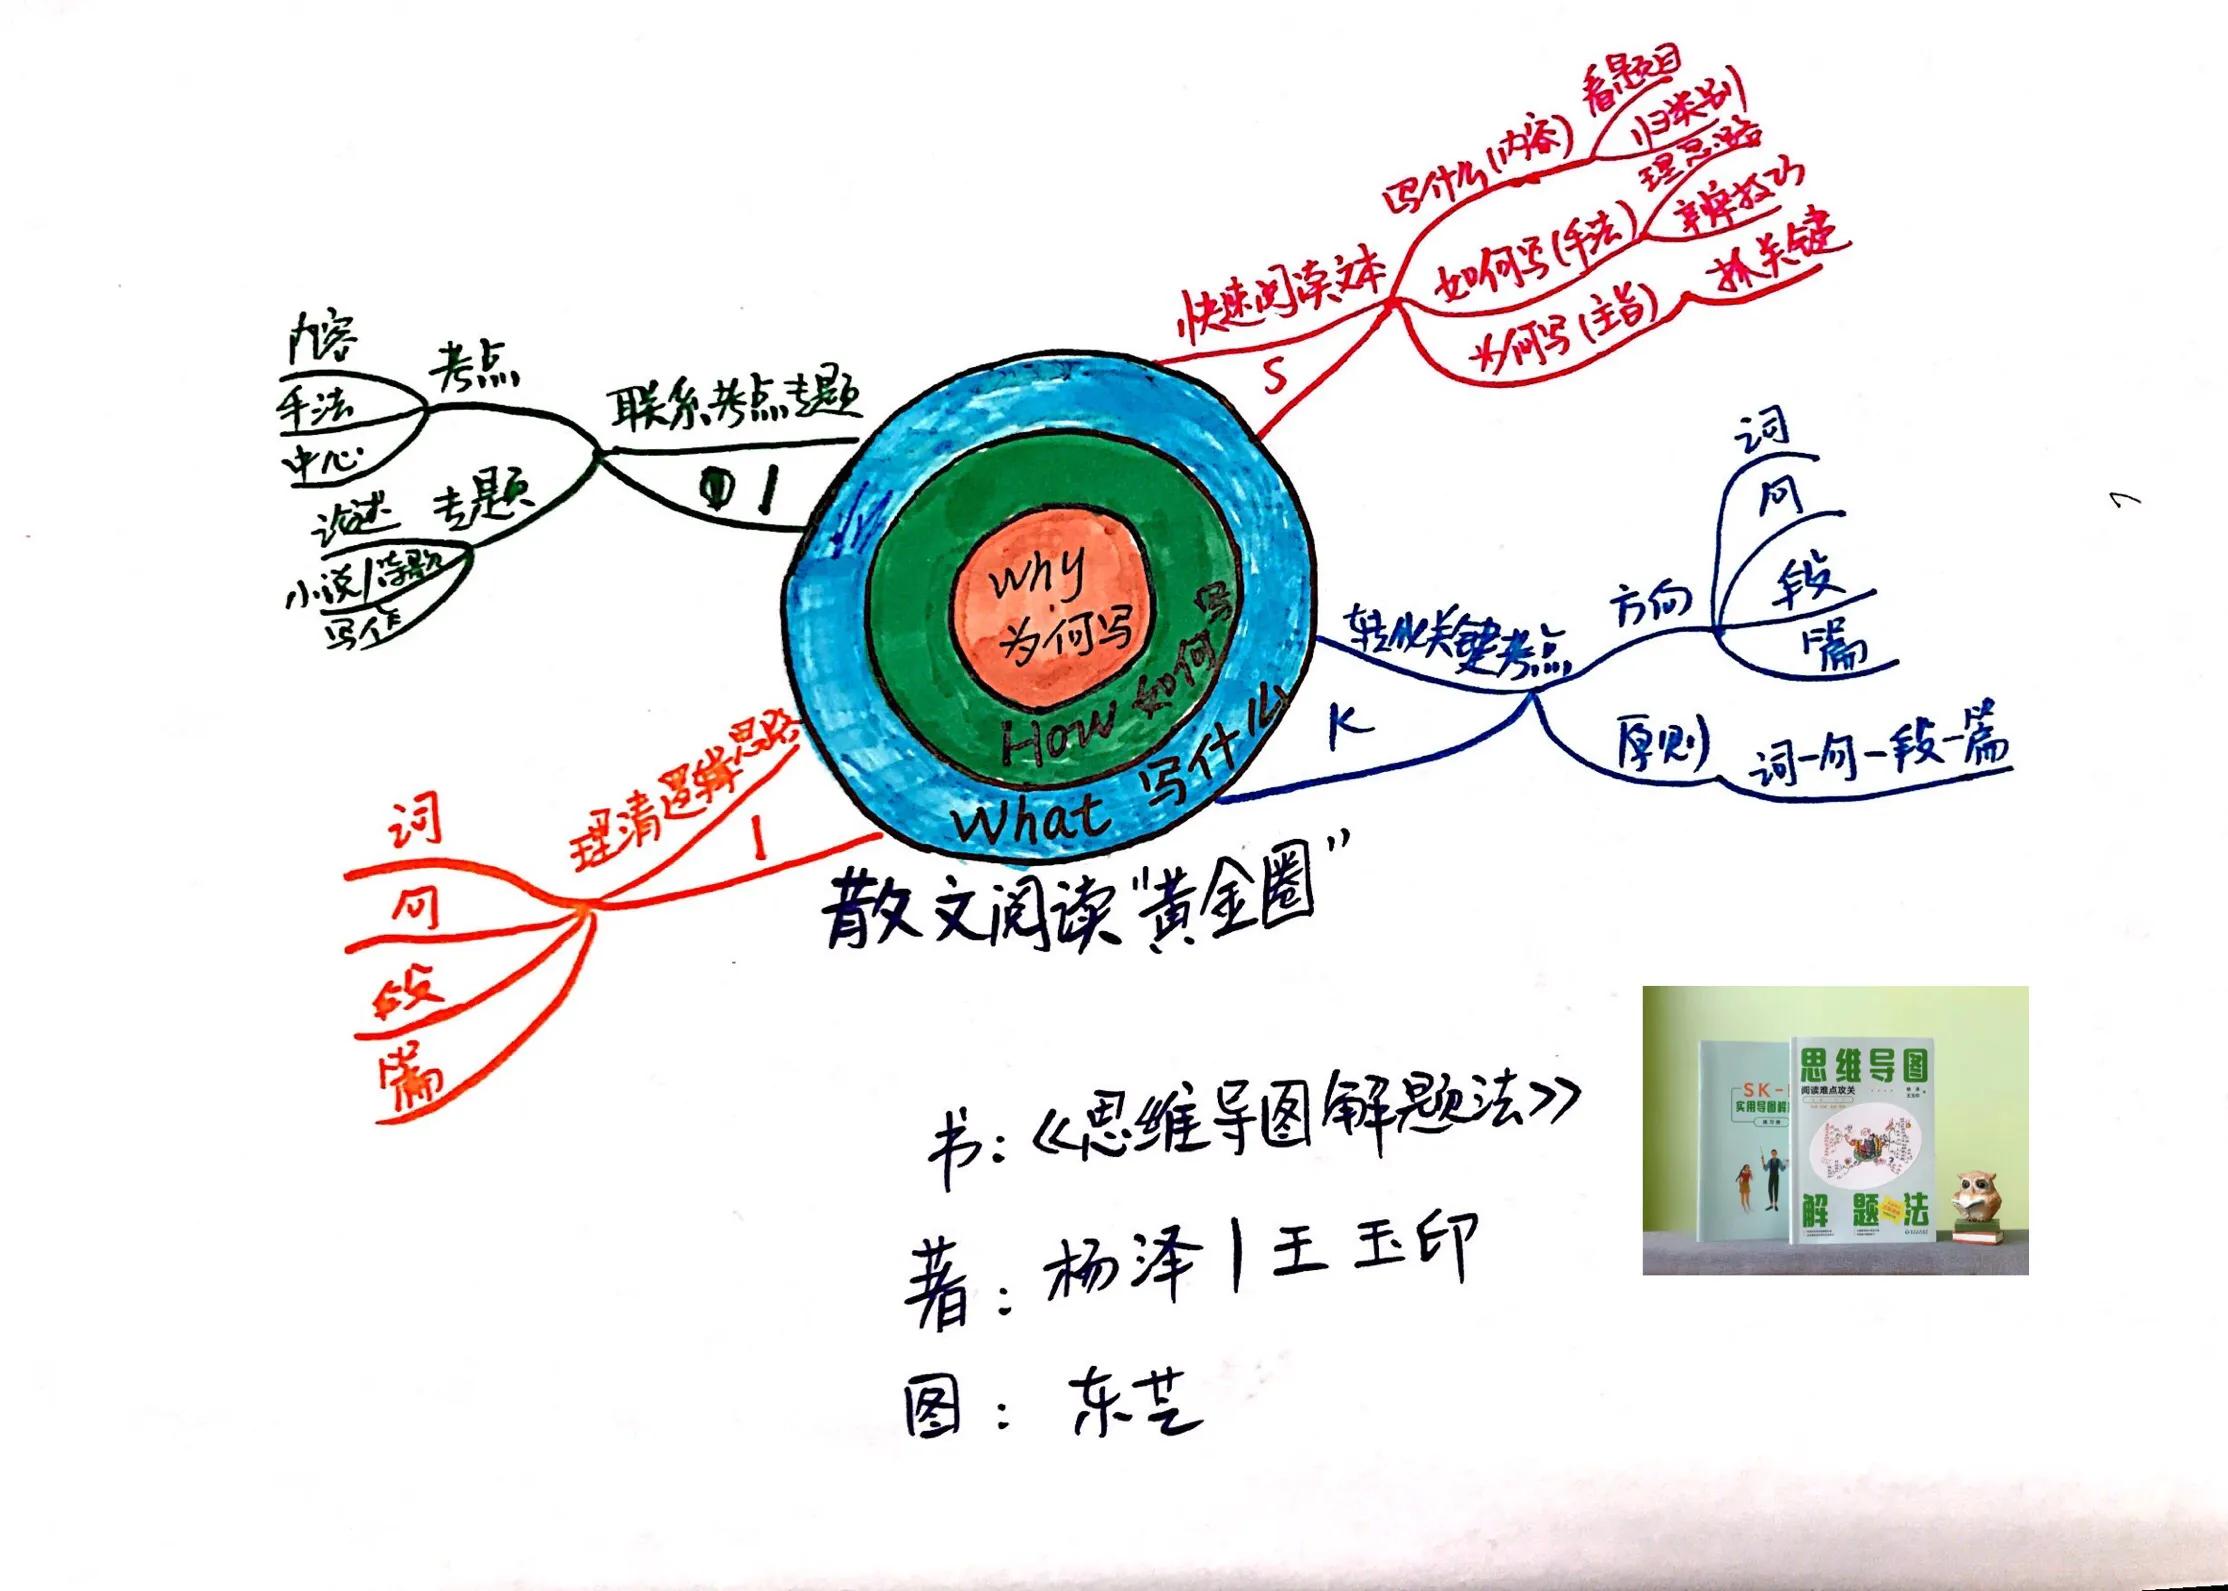 Why
为何写
How 如何写
What 写什么
散文阅读“黄金圈”
快速阅读文本
S
写什么(内容)
看题目
归类别
如何写(手法)
理思路
辨技巧
为何写(主旨)
抓关键
转化关键考点
K
方向
词
句
段
篇
原则
词-句-段-篇
理清逻辑思路
I
词
句
段
篇
联系考点专题
I
考点
内容
手法
中心
专题
论述
小说/诗歌
写作
书:《思维导图解题法》
著:杨泽|王玉印
图:东芸
SK-
实用导图解
练习册
思维导图
阅读难点攻关
解题法